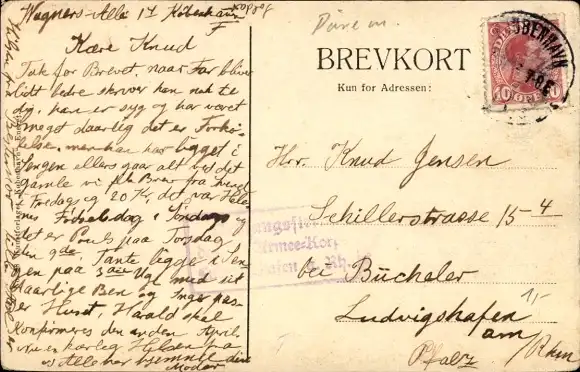 Wagners-Alle 17 København
F
Kære Knud
Tak for Brevet, naar Far bliver
lidt bedre skriver han nok til
dig, han er syg og har været
meget daarlig det er Forkø-
lelse, men han har ligget i
Sengen ellers gaar alt ved det
gamle vi fik Brev fra
Fredag og 20 Kr, det var
Fødselsdag i Søndags og
det er Pouls paa Torsdag
den 9de. Tante ligger i Sen-
gen paa 3die Uge med sit
daarlige Ben og Inger pas-
er Huset, Harald skal
Konfirmeres den anden April
nu en kærlig Hilsen fra
os Alle her hjemme din
Moder
Dänem.
BREVKORT
Kun for Adressen:
KØBENHAVN
10 ØRE 10
Hrr. Knud Jensen
Schillerstrasse 15-4
bei Bücheler
Ludwigshafen
am / Rhein
Pfalz
Armee-Korps
1,-